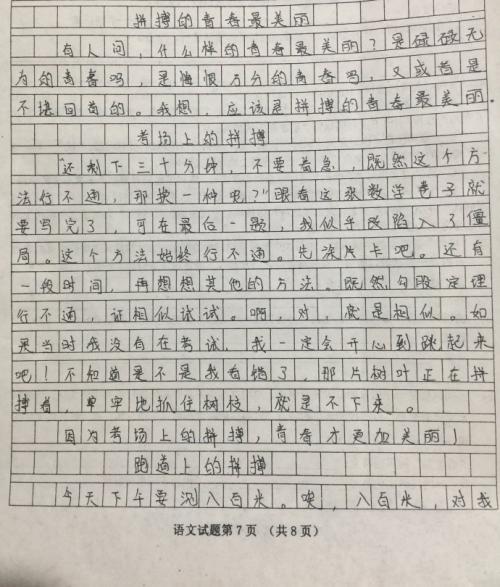 拼搏的青春最美丽
有人问，什么样的青春最美丽？是碌碌无
为的青春吗，是悔恨万分的青春吗，又或者是
不堪回首的。我想，应该是拼搏的青春最美丽。
考场上的拼搏
"还剩下三十分钟，不要着急，既然这个方
法行不通，那换一种吧？"眼看这张数学卷子就
要写完了，可在最后一题，我似乎陷入了僵
局。这个方法始终行不通。先涂片卡吧。还有
一段时间，再想想其他的方法。既然勾股定理
行不通，证相似试试。啊，对，就是相似。如
果当时我没有在考试，我一定会开心到跳起来
吧！不知道是不是我看错了，那片树叶正在拼
搏着，牢牢地抓住树枝，就是不下来。
因为考场上的拼搏，青春才更加美丽！
跑道上的拼搏
今天下午要测八百米。唉，八百米，对我
语文试题第7页 （共8页）